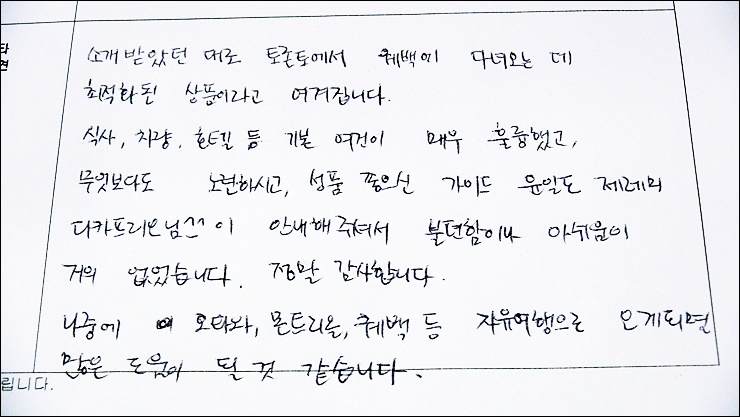 타
견
소개받았던 대로 토론토에서 퀘백에 다녀오는 데
최적화된 상품이라고 여겨집니다.
식사, 차량, 호텔 등 기본 여건이 매우 훌륭했고,
무엇보다도 노련하시고, 성품 좋으신 가이드 윤일도 제레미
디카프리오님^^이 안내해주셔서 불편함이나 아쉬움이
거의 없었습니다. 정말 감사합니다.
나중에 오타와, 몬트리올, 퀘백 등 자유여행으로 오게되면
많은 도움이 될 것 같습니다.
립니다.